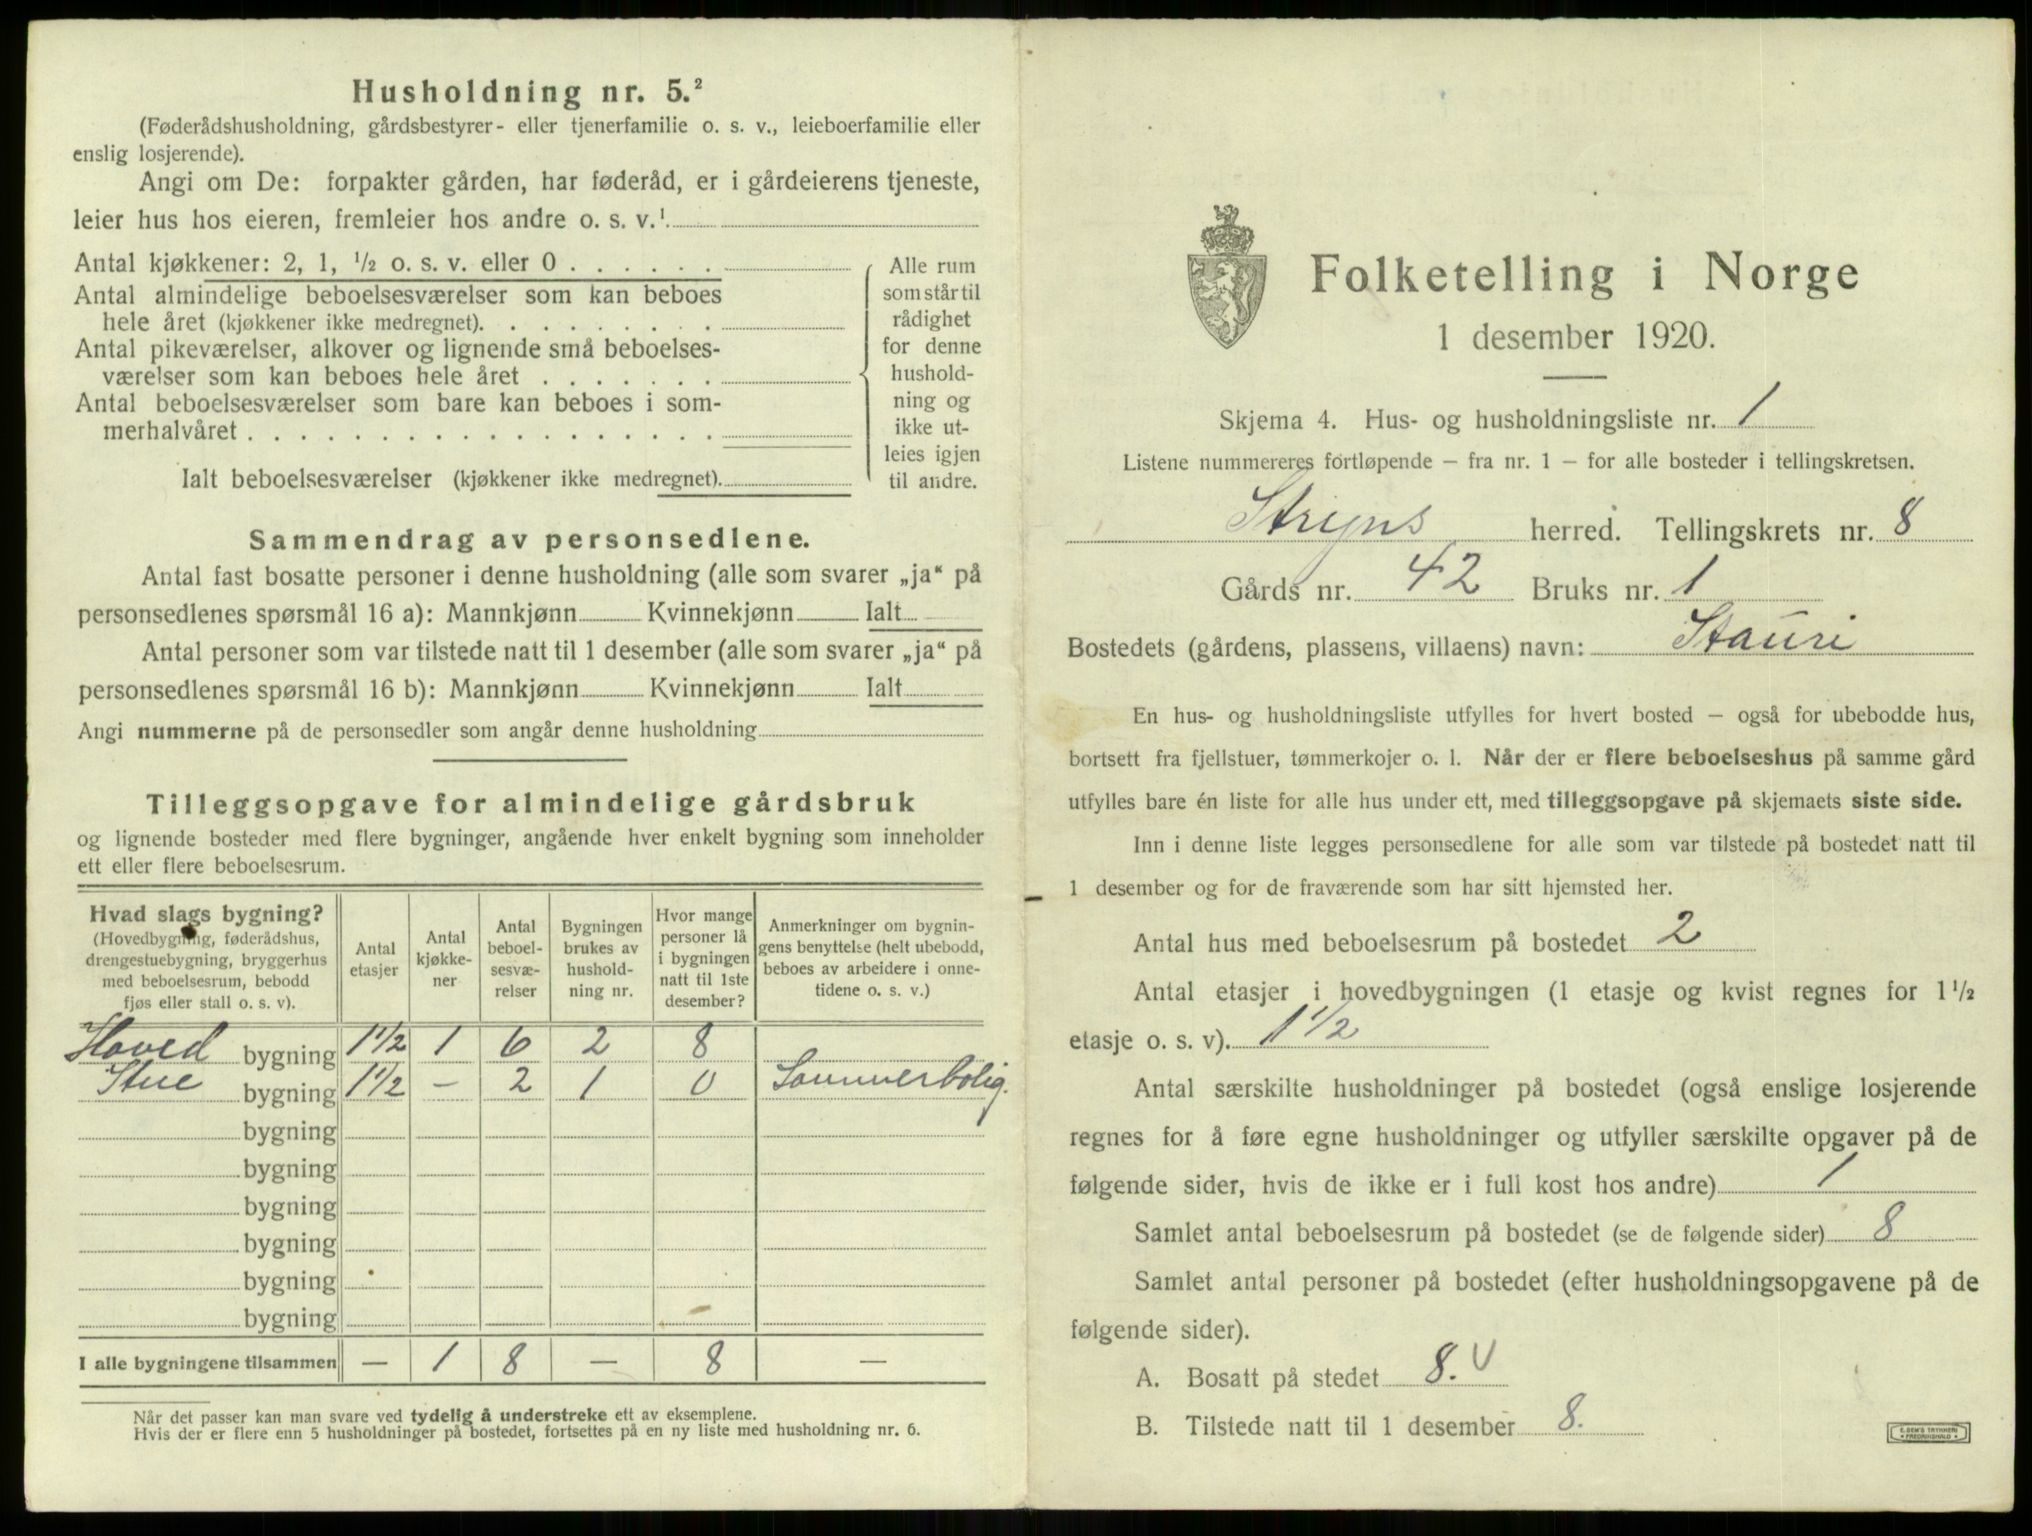 Husholdning nr. 5.²
(Føderådshusholdning, gårdsbestyrer- eller tjenerfamilie o. s. v., leieboerfamilie eller
enslig losjerende).
Angi om De: forpakter gården, har føderåd, er i gårdeierens tjeneste,
leier hus hos eieren, fremleier hos andre o. s. v.¹
Antal kjøkkener: 2, 1, ½ o. s. v. eller 0 . . . . . .
Antal almindelige beboelsesværelser som kan beboes
hele året (kjøkkener ikke medregnet). . . . . . . . .
Antal pikeværelser, alkover og lignende små beboelses-
værelser som kan beboes hele året . . . . . . .
Antal beboelsesværelser som bare kan beboes i som-
merhalvåret . . . . . . . . . . . . . . . . . .
Ialt beboelsesværelser (kjøkkener ikke medregnet).
Alle rum
som står til
rådighet
for denne
hushold-
ning og
ikke ut-
leies igjen
til andre.
Sammendrag av personsedlene.
Antal fast bosatte personer i denne husholdning (alle som svarer „ja“ på
personsedlenes spørsmål 16 a): Mannkjønn Kvinnekjønn Ialt
Antal personer som var tilstede natt til 1 desember (alle som svarer „ja“ på
personsedlenes spørsmål 16 b): Mannkjønn Kvinnekjønn Ialt
Angi nummerne på de personsedler som angår denne husholdning
Tilleggsopgave for almindelige gårdsbruk
og lignende bosteder med flere bygninger, angående hver enkelt bygning som inneholder
ett eller flere beboelsesrum.
Hvad slags bygning?
(Hovedbygning, føderådshus,
drengestuebygning, bryggerhus
med beboelsesrum, bebodd
fjøs eller stall o. s. v).
Antal
etasjer
Antal
kjøkke-
ner
Antal
beboel-
sesvæ-
relser
Bygningen
brukes av
hushold-
ning nr.
Hvor mange
personer lå
i bygningen
natt til 1ste
desember?
Anmerkninger om bygnin-
gens benyttelse (helt ubebodd,
beboes av arbeidere i onne-
tidene o. s. v.)
Hoved bygning 1½ 1 6 2 8
Stue bygning 1½ – 2 1 0 Sommerbolig.
bygning
bygning
bygning
bygning
bygning
bygning
I alle bygningene tilsammen — 1 8 — 8 —
Når det passer kan man svare ved tydelig å understreke ett av eksemplene.
Hvis der er flere enn 5 husholdninger på bostedet, fortsettes på en ny liste med husholdning nr. 6.
Folketelling i Norge
1 desember 1920.
Skjema 4. Hus- og husholdningsliste nr. 1
Listene nummereres fortløpende — fra nr. 1 — for alle bosteder i tellingskretsen.
Stryns herred. Tellingskrets nr. 8
Gårds nr. 42 Bruks nr. 1
Bostedets (gårdens, plassens, villaens) navn: Stauri
En hus- og husholdningsliste utfylles for hvert bosted — også for ubebodde hus,
bortsett fra fjellstuer, tømmerkojer o. l. Når der er flere beboelseshus på samme gård
utfylles bare én liste for alle hus under ett, med tilleggsopgave på skjemaets siste side.
Inn i denne liste legges personsedlene for alle som var tilstede på bostedet natt til
1 desember og for de fraværende som har sitt hjemsted her.
Antal hus med beboelsesrum på bostedet 2
Antal etasjer i hovedbygningen (1 etasje og kvist regnes for 1½
etasje o. s. v). 1½
Antal særskilte husholdninger på bostedet (også enslige losjerende
regnes for å føre egne husholdninger og utfyller særskilte opgaver på de
følgende sider, hvis de ikke er i full kost hos andre) 1
Samlet antal beboelsesrum på bostedet (se de følgende sider) 8
Samlet antal personer på bostedet (efter husholdningsopgavene på de
følgende sider).
A. Bosatt på stedet 8. V
B. Tilstede natt til 1 desember 8.
E. SEM'S TRYKKERI
• FREDRIKSHALD •